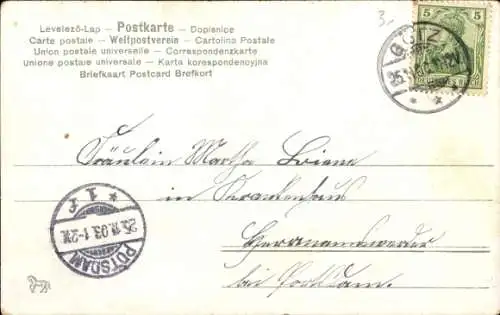 Levelező-Lap – Postkarte – Dopisnice
Carte postale – Weltpostverein – Cartolina Postale
Union postale universelle – Correspondenzkarte
Unione postale universale – Karta korespondencyjna
Briefkaart Postcard Brefkort
3.-
5 5
DEUTSCHES REICH
Fräulein Martha
im Krankenhaus
Hermannswerder
bei Potsdam.
POTSDAM
25.11.03. 1-2N.
* 1 f